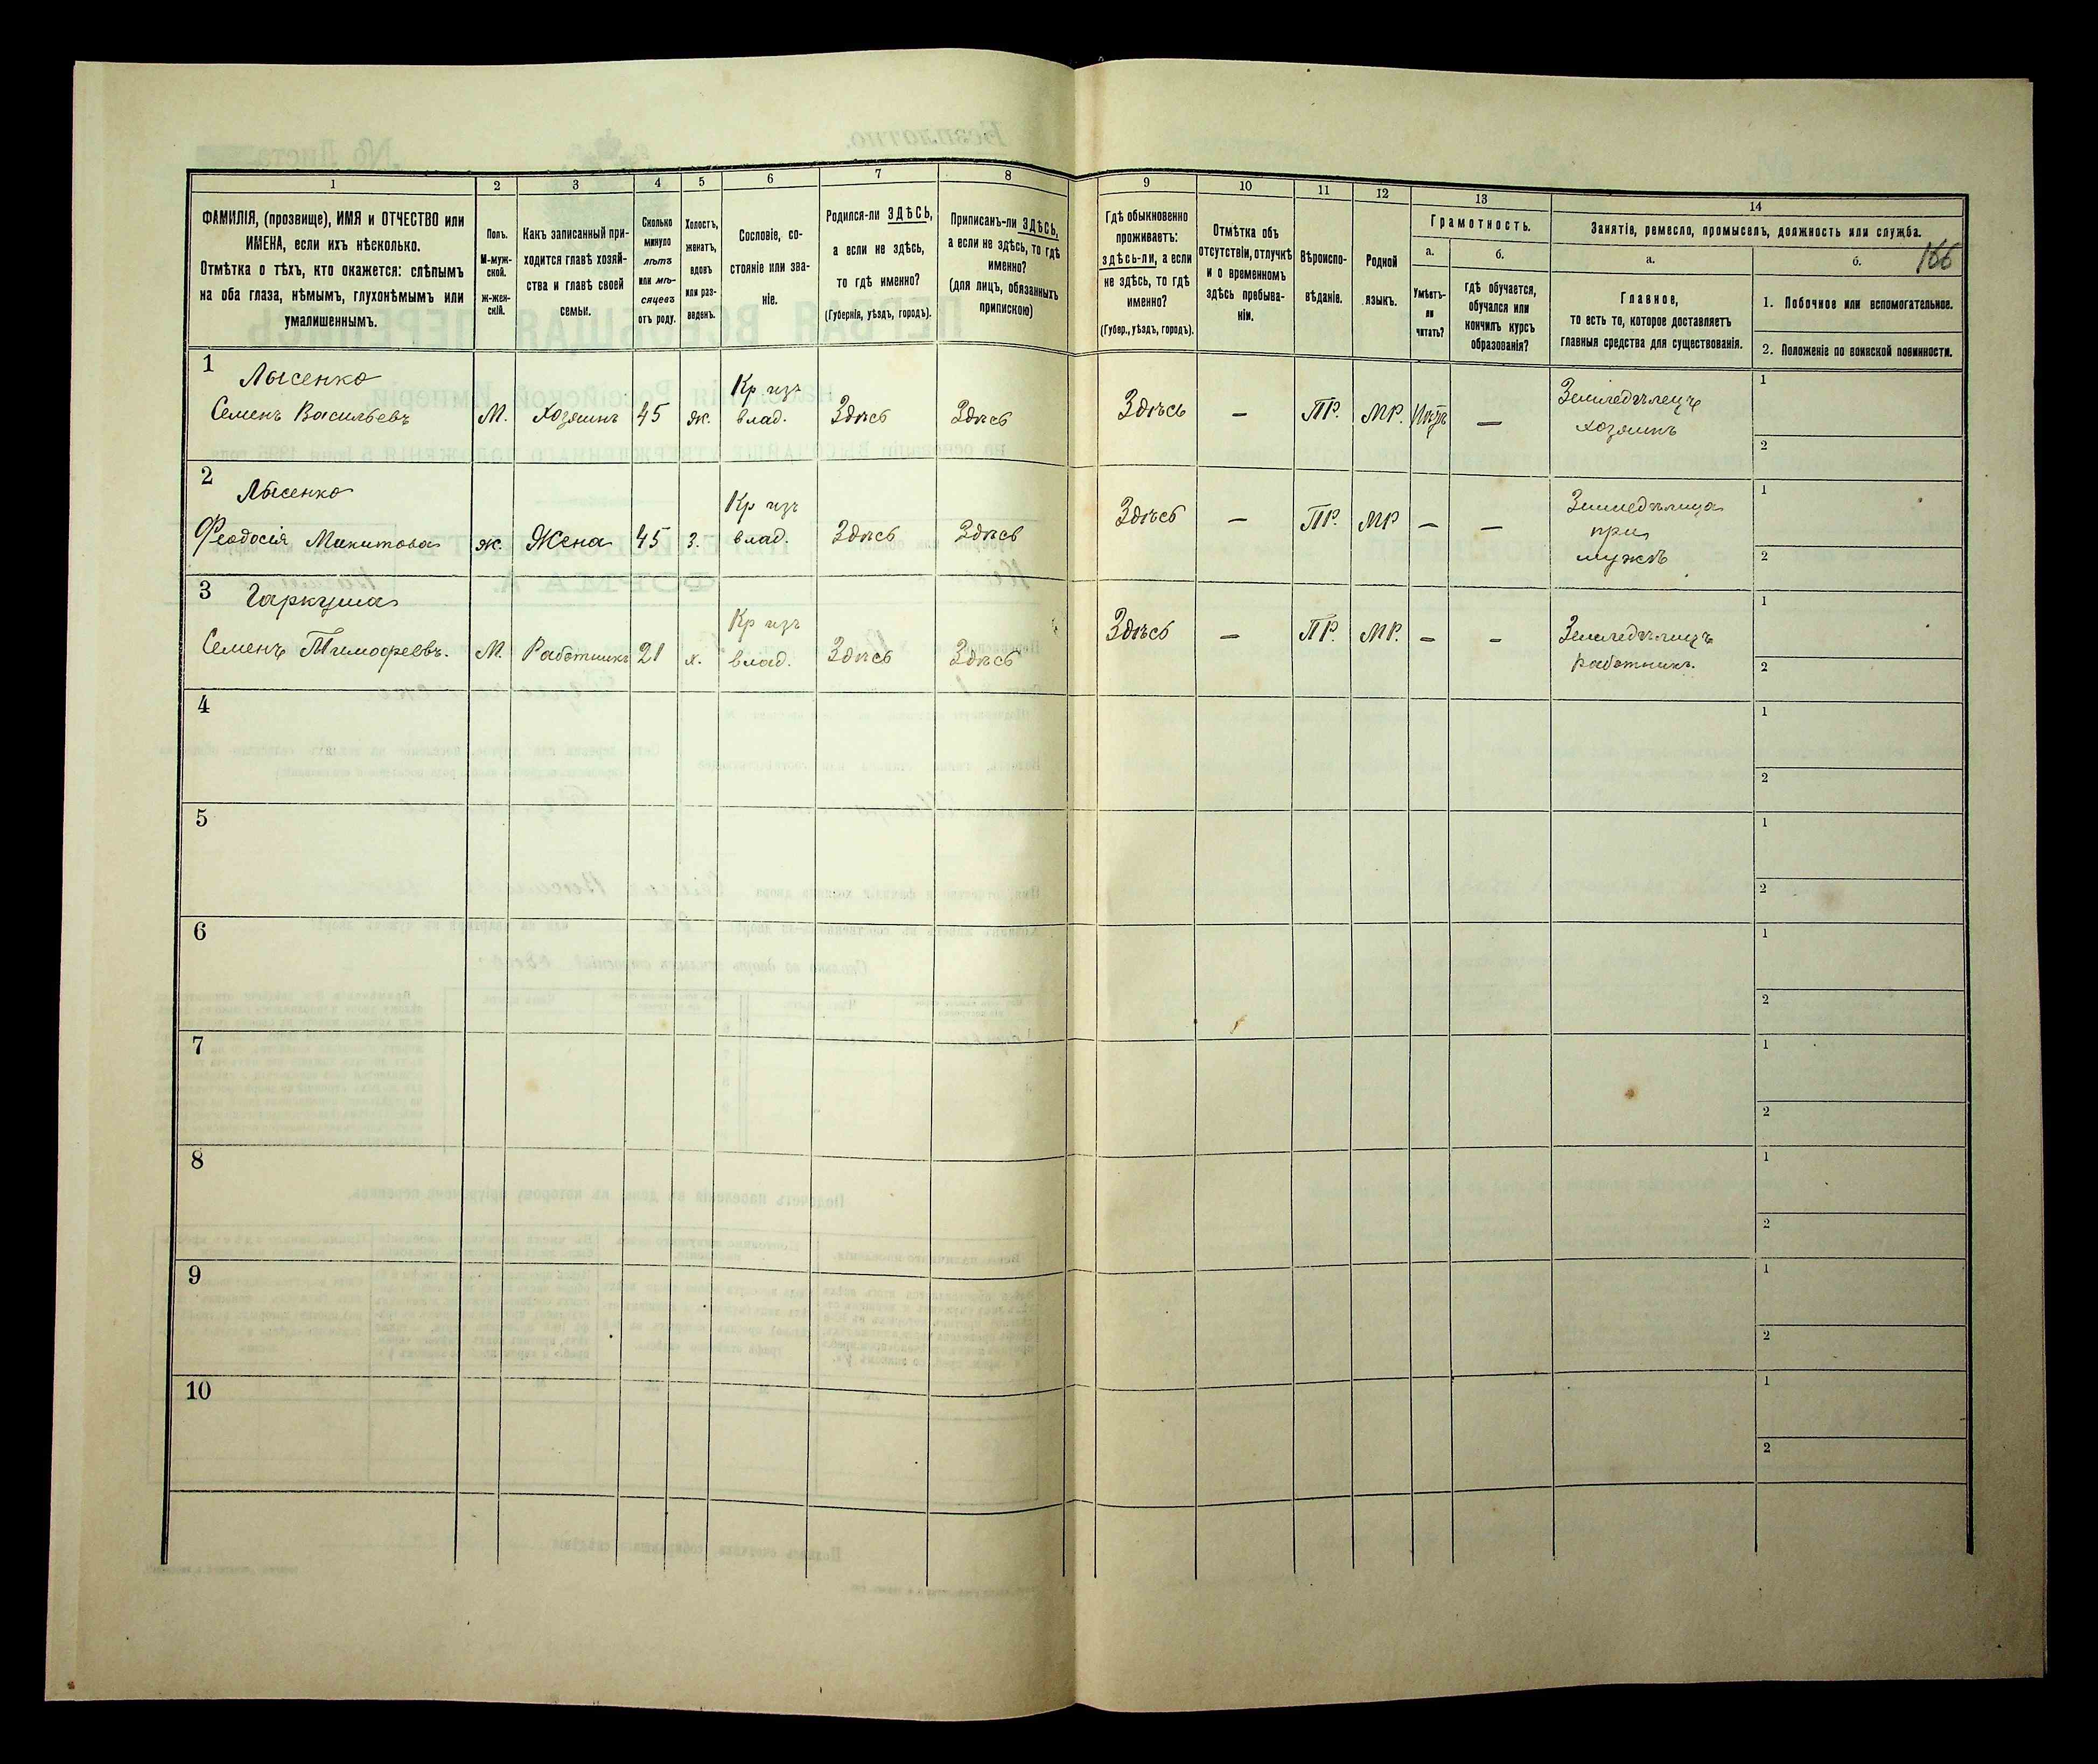 166
1
ФАМИЛІЯ, (прозвище), ИМЯ и ОТЧЕСТВО или
ИМЕНА, если ихъ нѣсколько.
Отмѣтка о тѣхъ, кто окажется: слѣпымъ
на оба глаза, нѣмымъ, глухонѣмымъ или
умалишеннымъ.
2
Полъ.
М-муж-
ской.
Ж-жен-
скій.
3
Какъ записанный при-
ходится главѣ хозяй-
ства и главѣ своей
семьи.
4
Сколько
минуло
лѣтъ
или мѣ-
сяцевъ
отъ роду.
5
Холостъ,
женатъ,
вдовъ
или раз-
веденъ.
6
Сословіе, со-
стояніе или зва-
ніе.
7
Родился-ли ЗДѢСЬ,
а если не здѣсь,
то гдѣ именно?
(Губернія, уѣздъ, городъ).
8
Приписанъ-ли ЗДѢСЬ,
а если не здѣсь, то гдѣ
именно?
(для лицъ, обязанныхъ
припискою)
9
Гдѣ обыкновенно
проживаетъ:
здѣсь-ли, а если
не здѣсь, то гдѣ
именно?
(Губер., уѣздъ, городъ).
10
Отмѣтка объ
отсутствіи, отлучкѣ
и о временномъ
здѣсь пребыва-
ніи.
11
Вѣроиспо-
вѣданіе.
12
Родной
языкъ.
13
Грамотность.
а.
Умѣетъ-
ли
читать?
б.
гдѣ обучается,
обучался или
кончилъ курсъ
образованія?
14
Занятіе, ремесло, промыселъ, должность или служба.
а.
Главное,
то есть то, которое доставляетъ
главныя средства для существованія.
б.
1. Побочное или вспомогательное.
2. Положеніе по воинской повинности.
1
Лысенко
Семенъ Васильевъ
М.
Хозяинъ
45
ж.
Кр изъ
влад.
Здѣсь
Здѣсь
Здѣсь
—
ПР.
МР.
—
Земледѣлецъ
хозяинъ
1
2
2
Лысенко
Феодосія Микитова
ж.
Жена
45
З.
Кр изъ
влад.
Здѣсь
Здѣсь
Здѣсь
—
ПР.
МР
—
—
при
мужѣ
1
2
3
Гаркуша
Семенъ Тимофеевъ.
М.
Работникъ
21
х.
Кр изъ
влад.
Здѣсь
Здѣсь
Здѣсь
—
ПР.
МР.
—
—
Земледѣлецъ
работникъ.
1
2
4
1
2
5
1
2
6
1
2
7
1
2
8
1
2
9
1
2
10
1
2